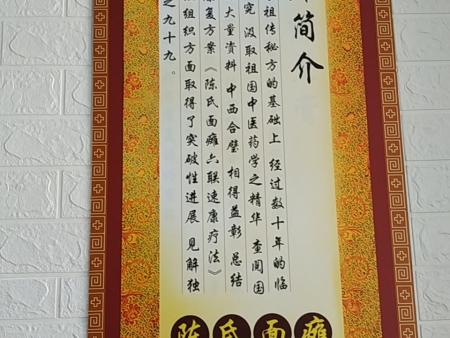 简介
祖传秘方的基础上 经过数十年的临
究 汲取祖国中医药学之精华 查阅国
大量资料 中西合璧 相得益彰 总结
复方案《陈氏面瘫六联速康疗法》
组织方面取得了突破性进展 见解独
之九十九。
陈氏面瘫